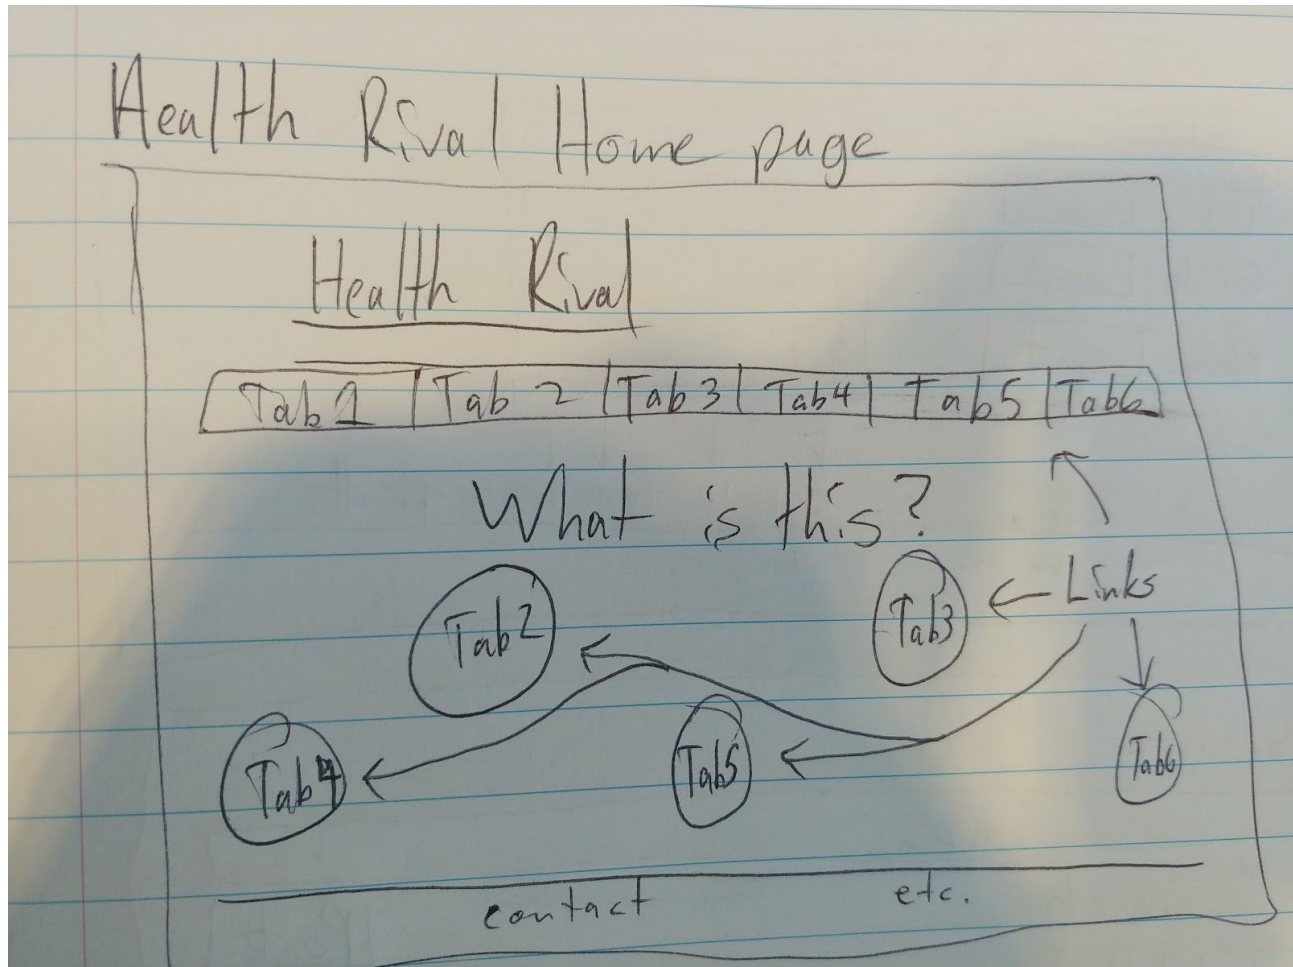 Health Rival Home page
Health Rival
Tab 1 Tab 2 Tab 3 Tab4 Tab5 Tab6
What is this?
Tab2 Tab3 Links
Tab4 Tab5 Tab6
contact etc.